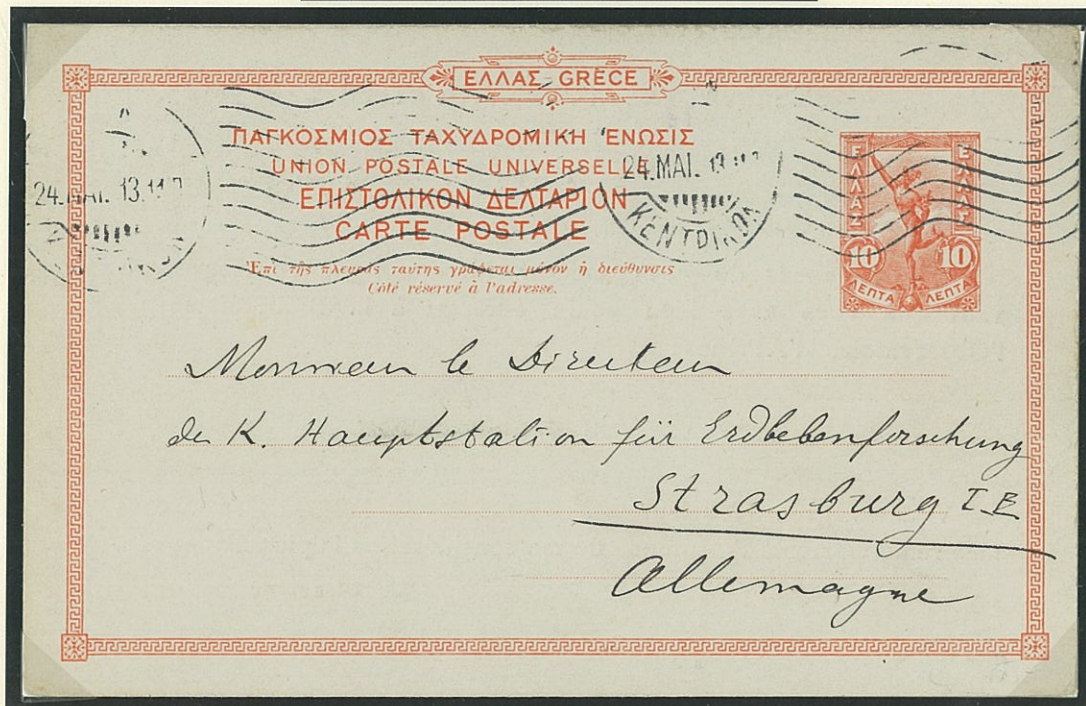 ΕΛΛΑΣ-GRÈCE
ΠΑΓΚΟΣΜΙΟΣ ΤΑΧΥΔΡΟΜΙΚΗ ἝΝΩΣΙΣ
UNION POSTALE UNIVERSELLE
ΕΠΙΣΤΟΛΙΚΟΝ ΔΕΛΤΑΡΙΟΝ
CARTE POSTALE
Ἐπὶ τῆς πλευρᾶς ταύτης γράφεται μόνον ἡ διεύθυνσις
Côté réservé à l'adresse.
24. ΜΑΙ. 13
24. ΜΑΙ. 13
ΚΕΝΤΡΙΚΟΝ
ΕΛΛΑΣ ΕΛΛΑΣ
10 10
ΛΕΠΤΑ ΛΕΠΤΑ
Monsieur le Directeur
der K. Hauptstation für Erdbebenforschung
Strasburg I.E
Allemagne